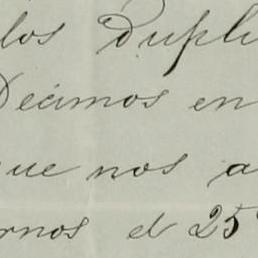 los Dupli
Decimos en
que nos a
rnos el 25